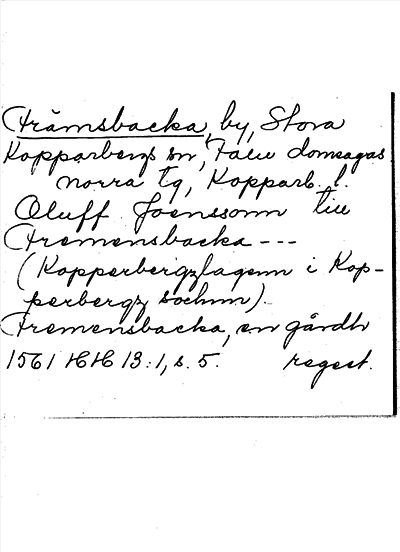 Främsbacka, by, Stora
Kopparbergs sn, Falu domsagas
norra tg, Kopparb. l.
Oluff Joenssonn till
Fremensbacka ---
(Kopperbergzlagenn i Kop-
perbergz sochnn).
Fremensbacka, en gårdh
1561 HH 13:1, s. 5. regest.